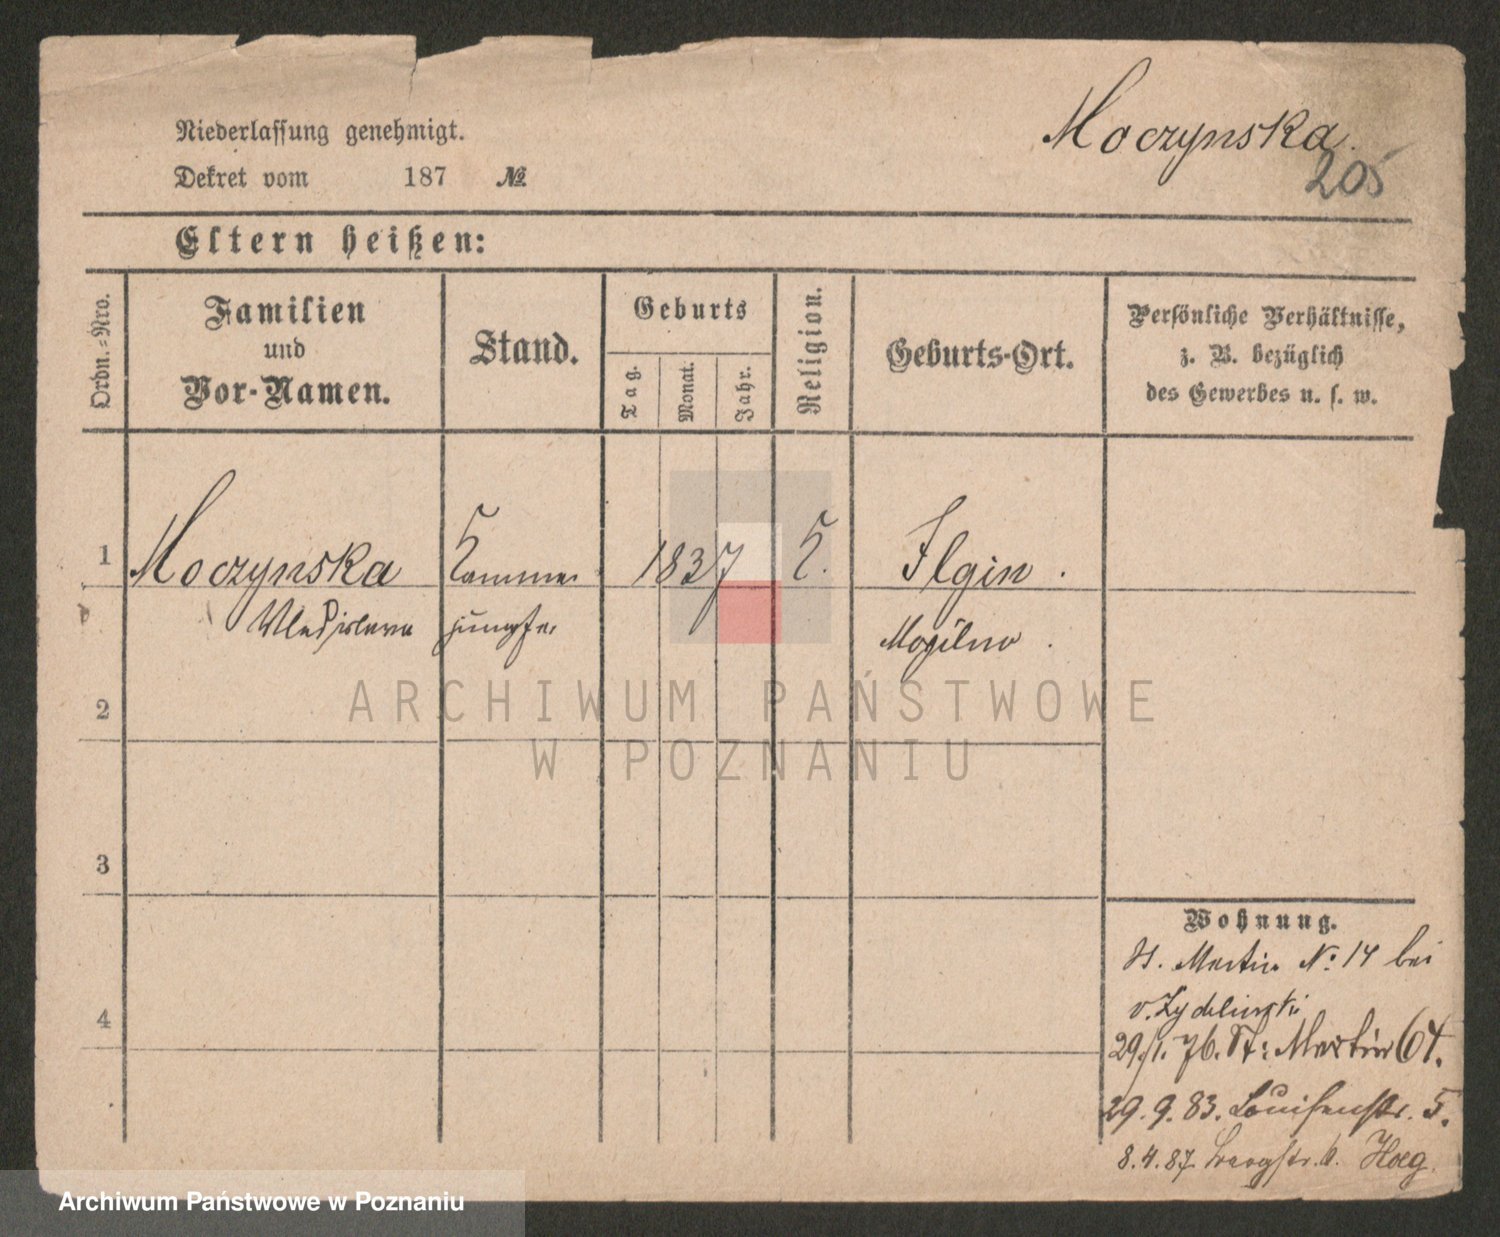 Moczynska.
205
Niederlassung genehmigt.
Dekret vom 187 №
Eltern heißen:
Ordn.-Nro.
Familien
und
Vor-Namen.
Stand.
Geburts
Tag.
Monat.
Jahr.
Religion.
Geburts-Ort.
Persönliche Verhältnisse,
z. B. bezüglich
des Gewerbes u. s. w.
1 Moczynska Kammer 1837 K. Ilgin.
Wladislawa jungfer Mogilno.
2
3
4
Wohnung.
St. Martin No: 14 bei
29/1. 76. St: Martin 64.
29. 9. 83. Louisenstr. 5.
8. 4. 87.
ARCHIWUM PAŃSTWOWE
W POZNANIU
Archiwum Państwowe w Poznaniu